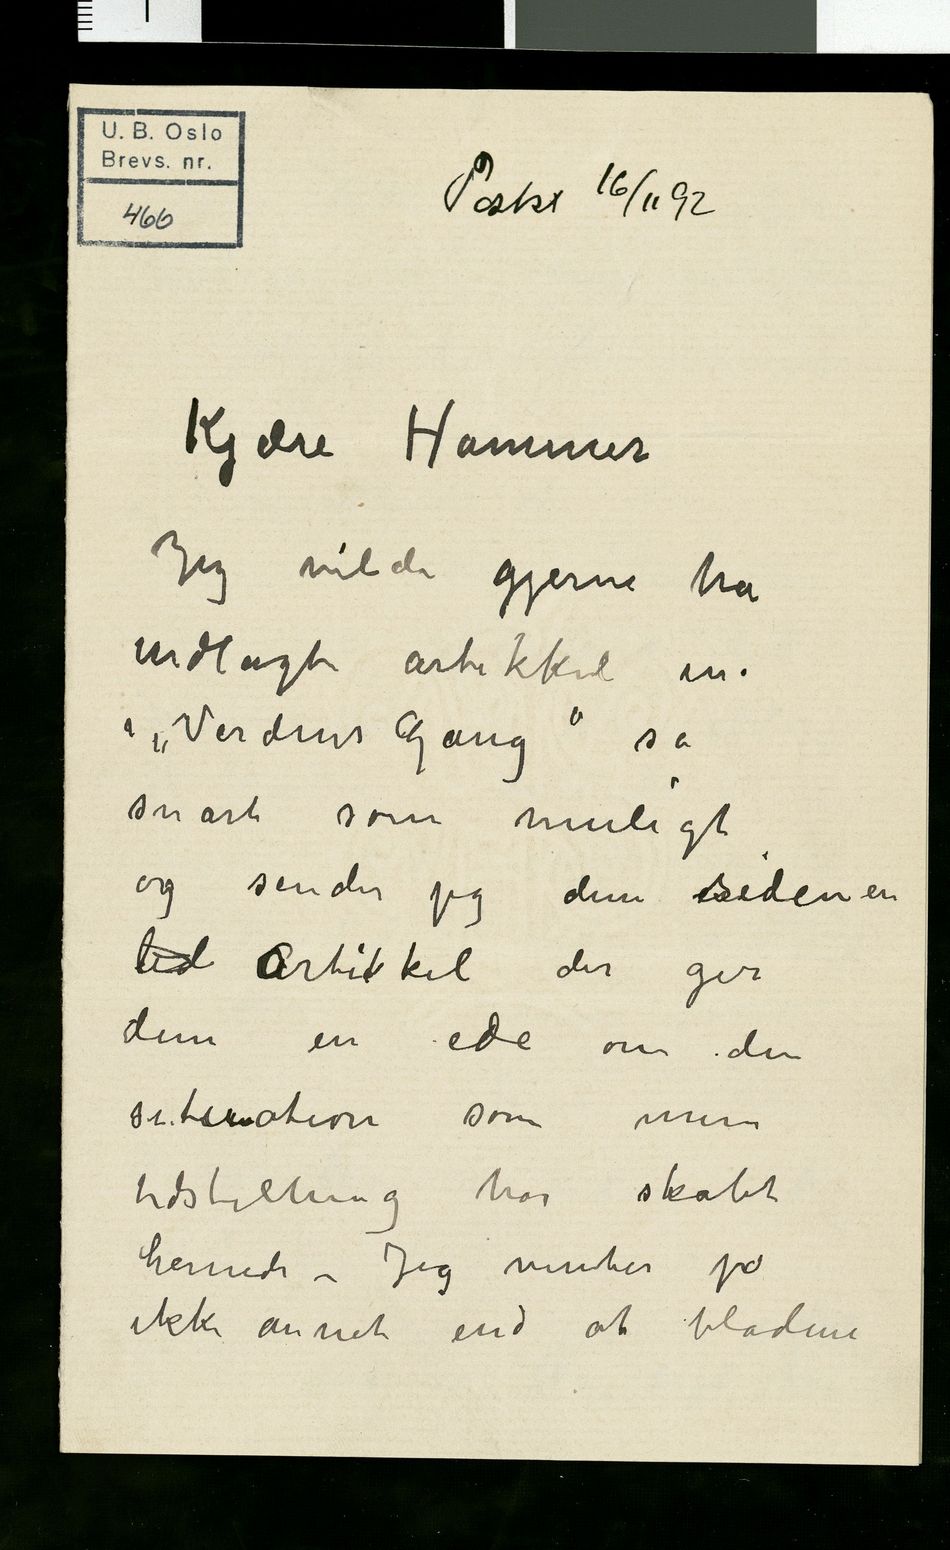 U. B. Oslo
Brevs. nr.
466
Postst 16/11 92
Kjære Hammer
Jeg vilde gjerne ha
indlagte artikkel in.
i „Verdens Gang" så
snart som muligt
og sender jeg dem siden en
artikkel der ger
dem en ide om den
situation som min
udstilling har skabt
hernede – Jeg venter jo
ikke annet end at bladene